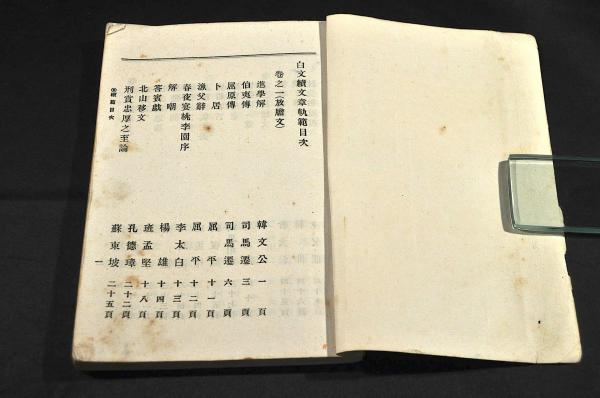 白文續文章軌範目次
卷之一(放膽文)
進學解 韓文公 一頁
伯夷傳 司馬遷 三頁
屈原傳 司馬遷 六頁
卜居 屈平 十一頁
漁父辭 屈平 十二頁
春夜宴桃李園序 李太白 十三頁
解嘲 楊雄 十四頁
答賓戲 班孟堅 十八頁
北山移文 孔德璋 二十二頁
刑賞忠厚之至論 蘇東坡 二十五頁
範目次 一